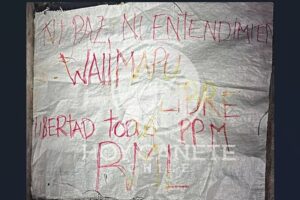 NI PAZ, NI ENTENDIMIEN
WALLMAPU
LIBRE
LIBERTAD TODXS PPM
RML